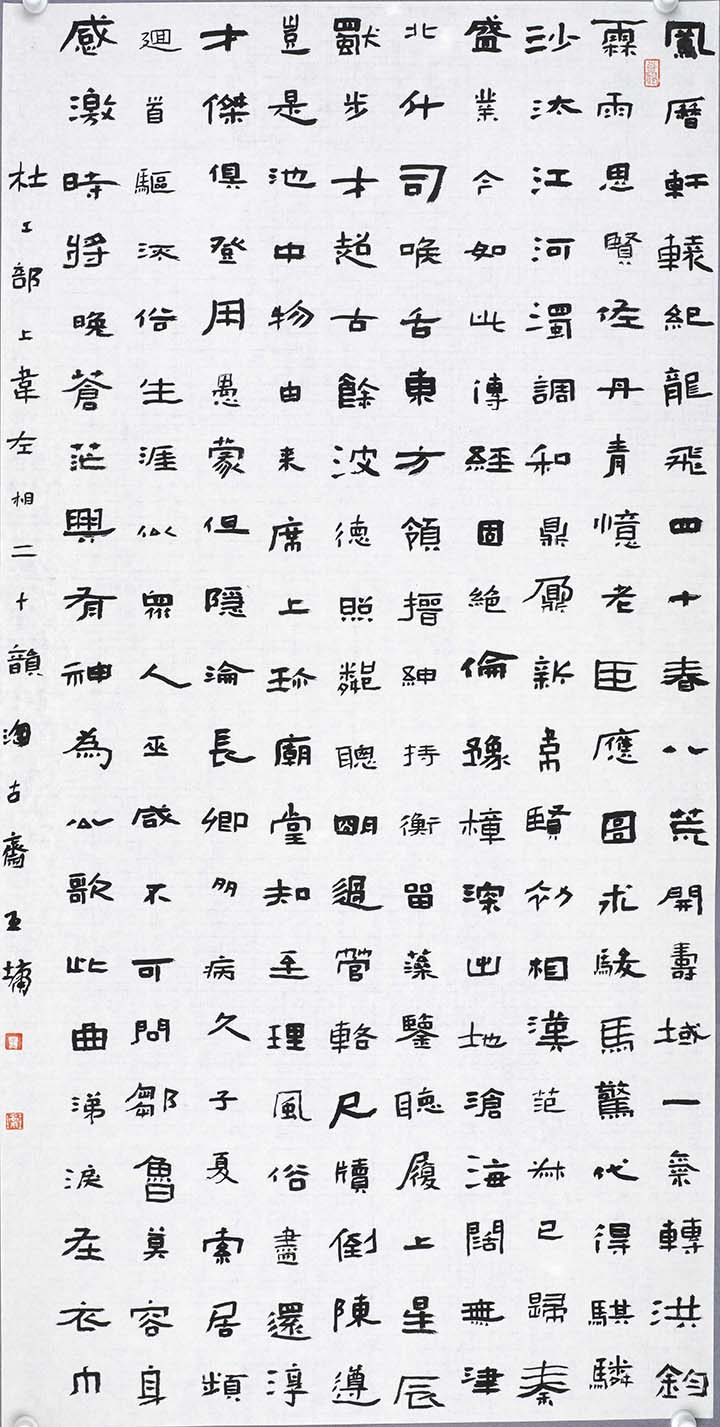 鳳曆軒轅紀龍飛四十春八荒開壽域一氣轉洪鈞
霖雨思賢佐丹青憶老臣應圖求駿馬驚代得騏驎
沙汰江河濁調和鼎鼐新韋賢初相漢范叔已歸秦
盛業今如此傳經固絕倫豫樟深出地滄海闊無津
北斗司喉舌東方領搢紳持衡留藻鑒聽履上星辰
獨步才超古餘波德照鄰聰明過管輅尺牘倒陳遵
豈是池中物由來席上珍廟堂知至理風俗盡還淳
才傑俱登用愚蒙但隱淪長卿多病久子夏索居頻
迴首驅流俗生涯似眾人巫咸不可問鄒魯莫容身
感激時將晚蒼茫興有神為公歌此曲涕淚在衣巾
杜工部上韋左相二十韻 古齋王墉